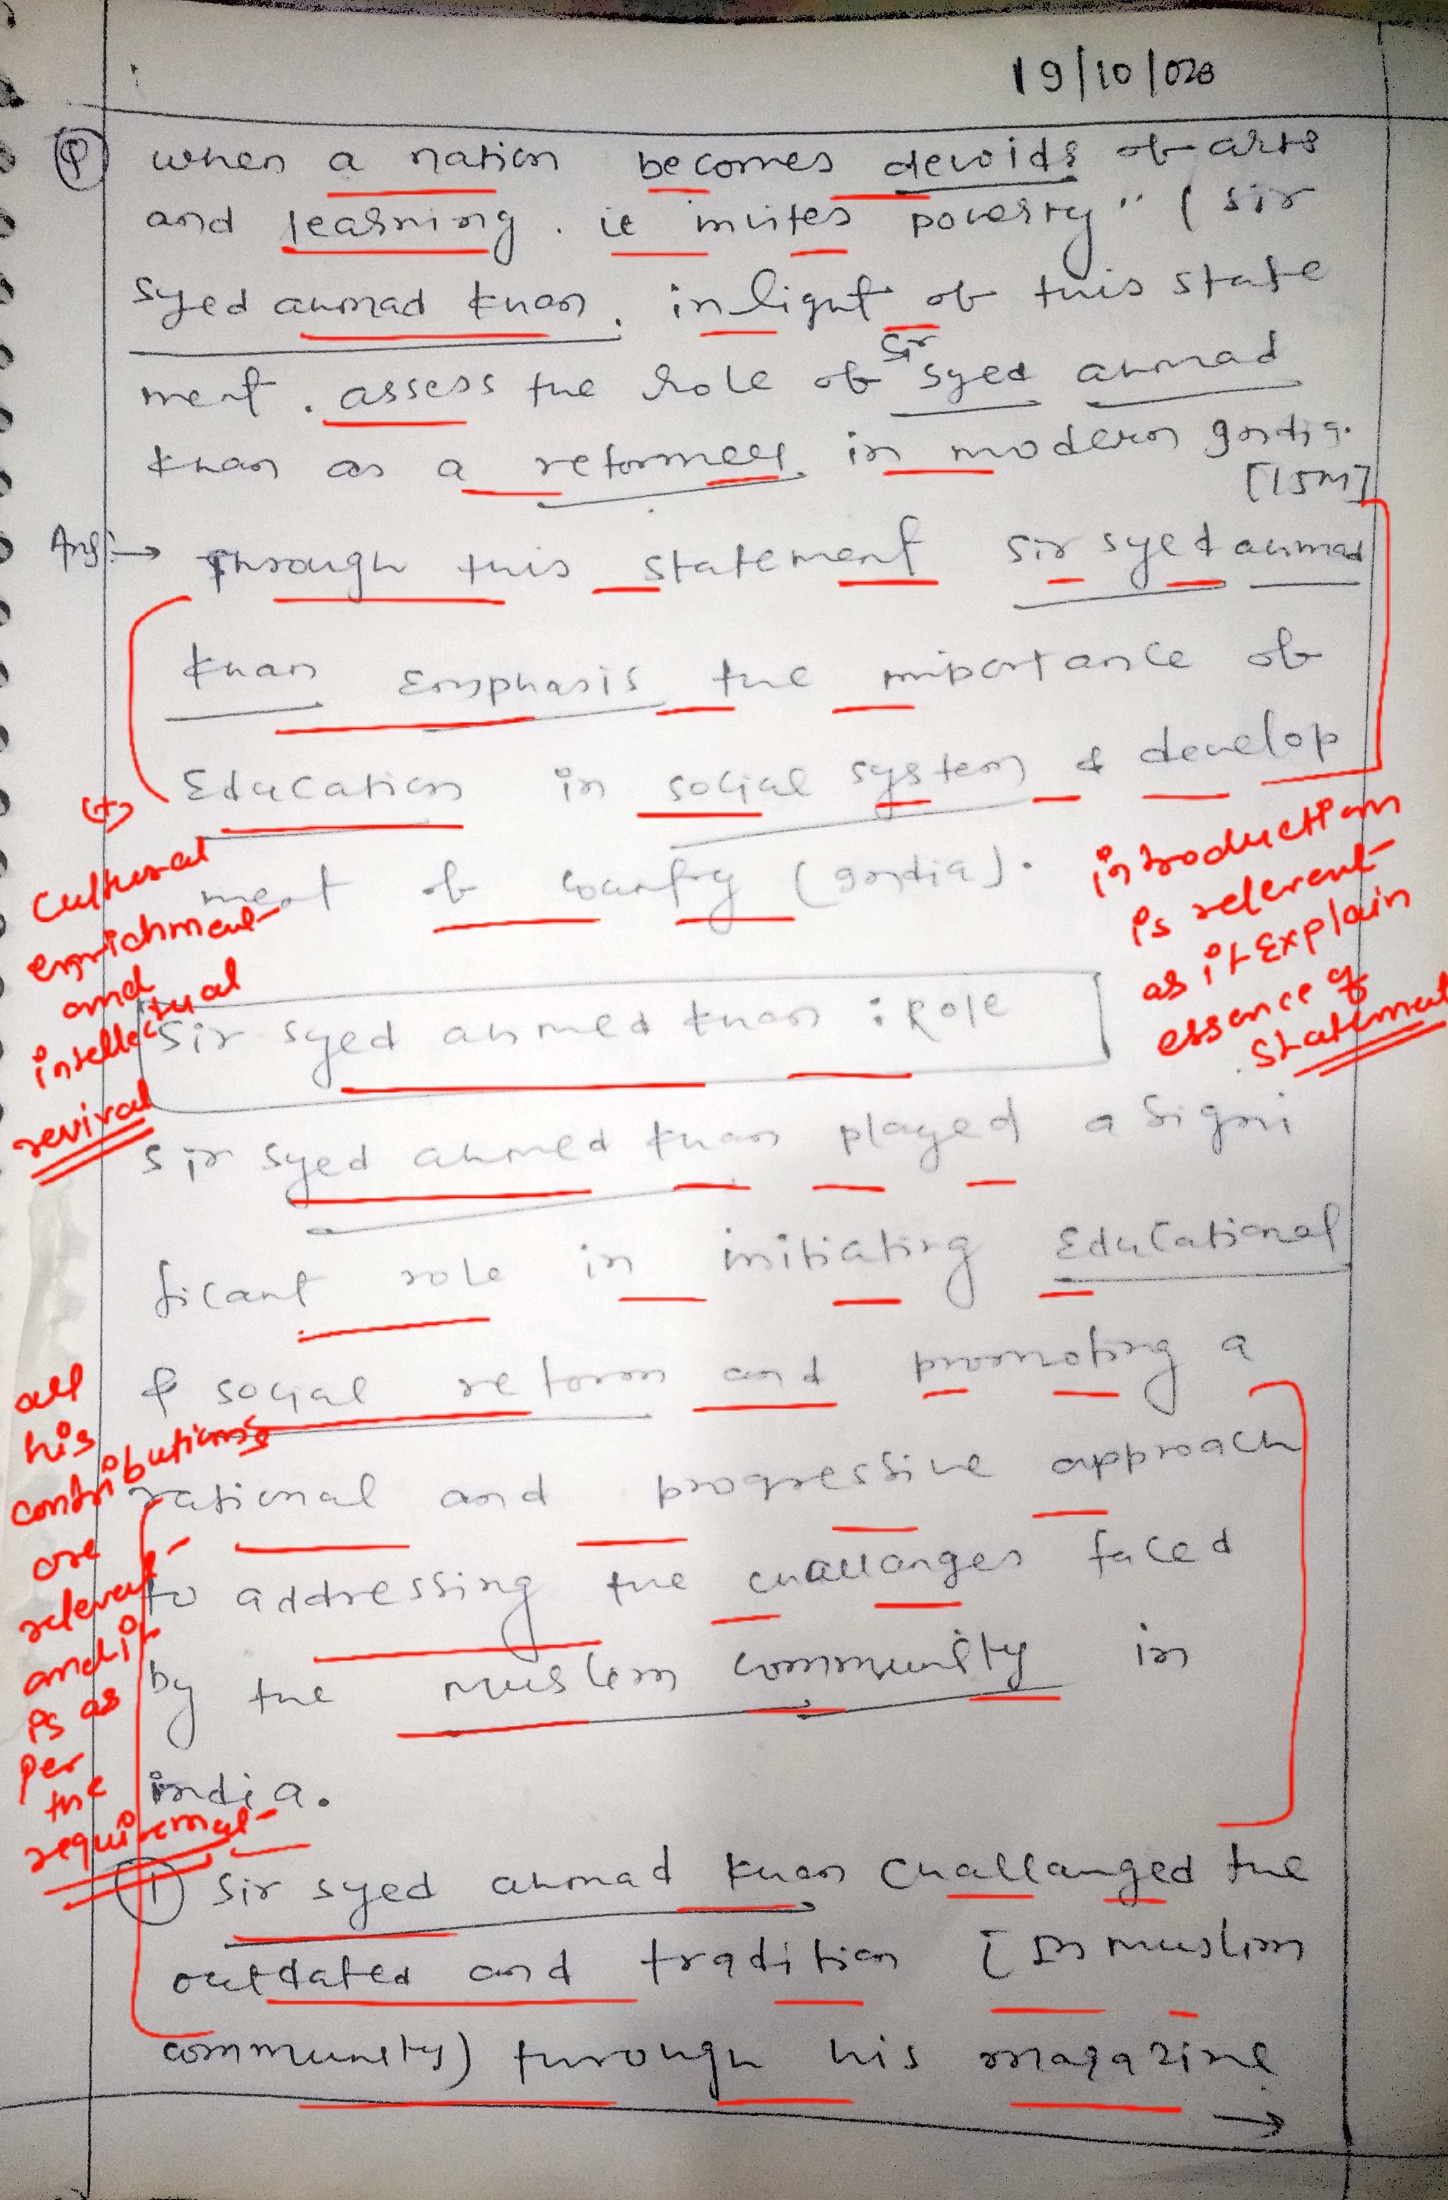 19/10/020
Q when a nation becomes devoids of arts
and learning. it invites poverty" ( sir
syed ahmad khan. in light of this state
ment. assess the role of sir syed ahmad
khan as a reformer in modern India.
[15M]
Ans:→ Through this statement sir syed ahmad
khan Emphasis the importance of
Education in social system & develop
ment of country (India).
(+)
cultural
enrichment
and
intellectual
revival
introduction
is relevent
as it Explain
essence of
statement
Sir syed ahmed khan : Role
sir syed ahmed khan played a signi
ficant role in initiating Educational
& social reform and promoting a
rational and progressive approach
to addressing the challanges faced
by the muslim community in
india.
all
his
contributions
are
relevent
and it
is as
per
the
requirement
① Sir syed ahmad khan challanged the
outdated and tradition (In muslim
community) through his magazine
→